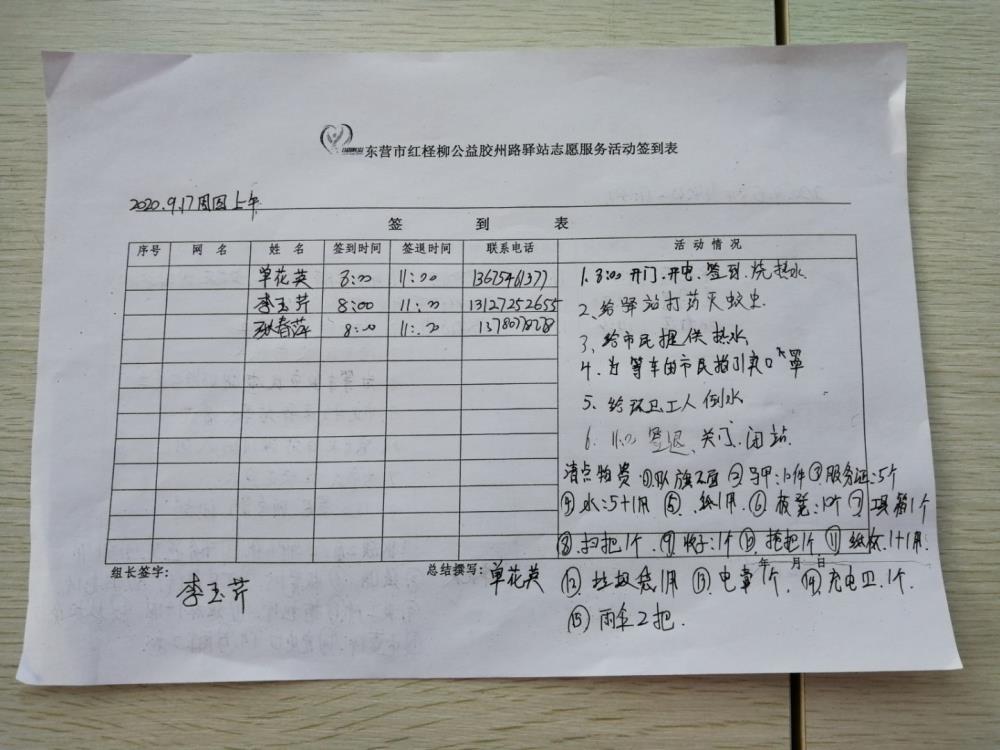 东营市红柽柳公益胶州路驿站志愿服务活动签到表
2020.9.17周四上午
签 到 表
序号 网 名 姓 名 签到时间 签退时间 联系电话 活 动 情 况
单花英 8:00 11:00 13675461377
李玉芹 8:00 11:00 13127252655
春萍 8:00 11:00
1. 8:00 开门.开电.签到.烧热水
2、给驿站打药灭蚊虫
3、给市民提供热水
4、为等车的市民指引卖口罩
5、给环卫工人倒水
6. 11:00 签退、关门、闭站.
清点物资:①队旗2面 ②马甲:12件 ③服务证:5个
④水:5+1用 ⑤.丝1用 ⑥板凳:10个 ⑦工具箱1个
⑧扫把1个.⑨牌子:1个 ⑩拖把1个 ⑪纸杯.1+1用.
年 月 日
组长签字: 李玉芹
总结撰写: 单花英
⑫垃圾袋1用 ⑬电草1个. ⑭充电卫.1个.
⑮雨伞2把.